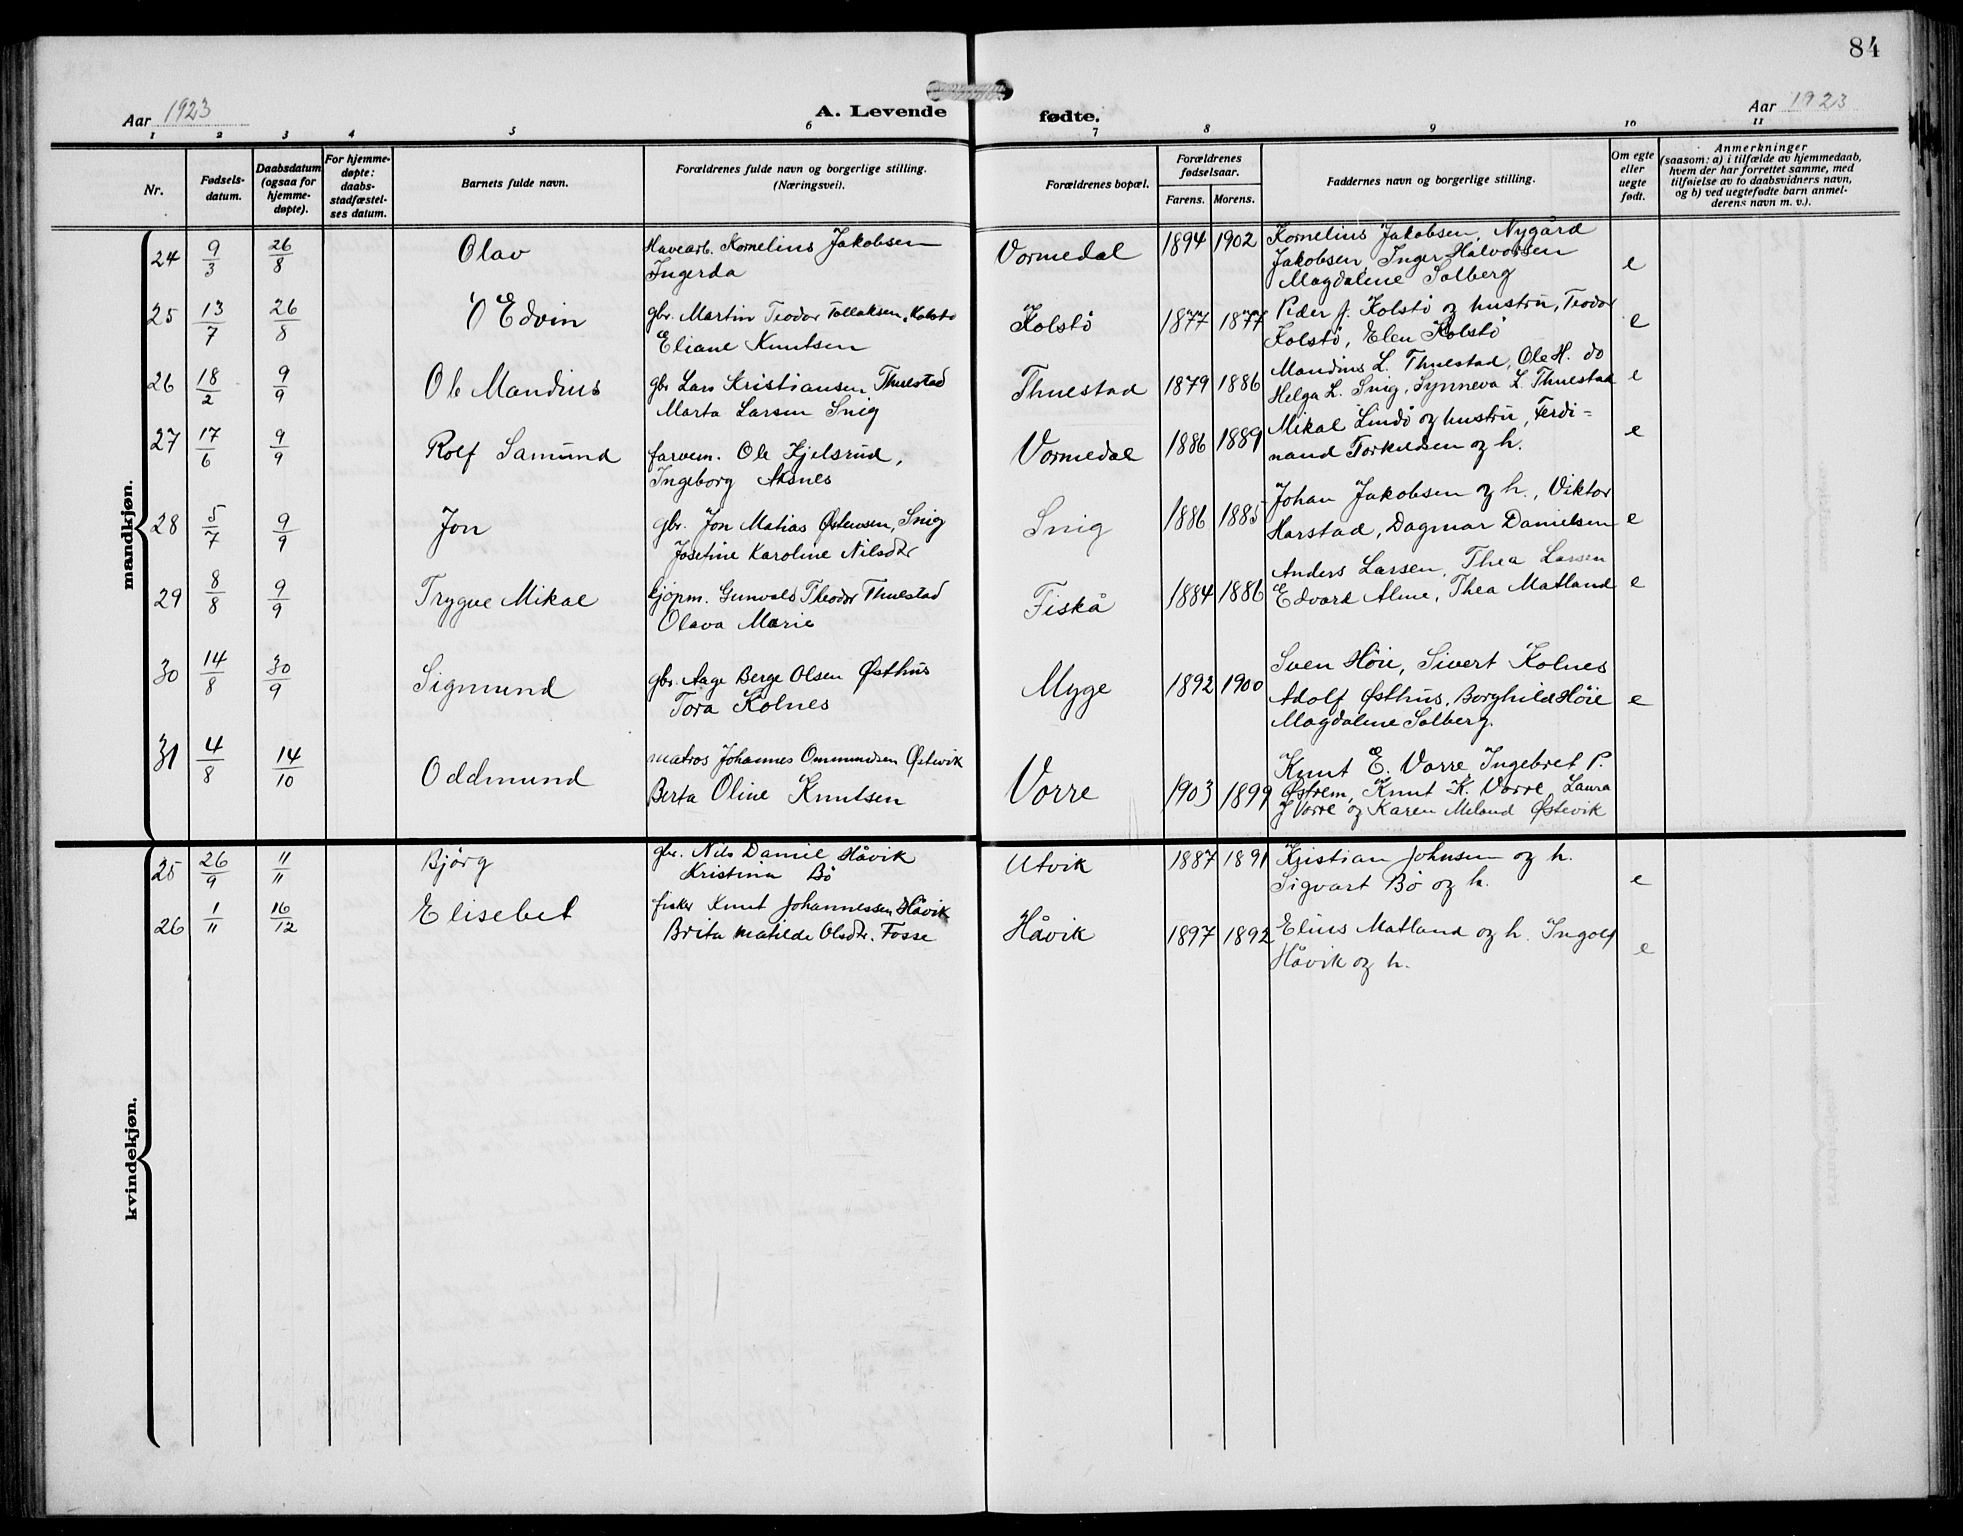 84
Aar 1923
A. Levende
fødte.
Aar 1923
1 2 3 4 5 6 7 8 9 10 11
Nr.
Fødsels-
datum.
Daabsdatum
(ogsaa for
hjemme-
døpte).
For hjemme-
døpte:
daabs-
stadfæstel-
ses datum.
Barnets fulde navn.
Forældrenes fulde navn og borgerlige stilling.
(Næringsvei).
Forældrenes bopæl.
Forældrenes
fødselsaar.
Farens. Morens.
Faddernes navn og borgerlige stilling.
Om egte
eller
uegte
født.
Anmerkninger
(saasom: a) i tilfælde av hjemmedaab,
hvem der har forrettet samme, med
tilføielse av to daabsvidners navn,
og b) ved uegtefødte barn anmel-
derens navn m. v.).
mandkjøn.
24 9/3 26/8 Olav Havearb. Kornelius Jakobsen Vormedal 1894 1902 Kornelius Jakobsen, Nygård
Ingerda Jakobsen Inger Halvorsen e
Magdalene Solberg
25 13/7 26/8 Edvin gbr. Martin Teodor Tollaksen, Kolstø Kolstö 1877 1877 Peder J. Kolstö og hustru, Teodor e
Eliane Knutsen Kolstö, Elen Kolstö
26 18/2 9/9 Ole Mandius gbr Lars Kristiansen Thuestad Thuestad 1879 1886 Mandius L. Thuestad, Ole H. do e
Marta Larsen Snig Helga L. Snig, Synneva L. Thuestad
27 17/6 9/9 Rolf Samund farvem. Ole Kjelsrud, Vormedal 1886 1889 Mikal Lindö og hustru, Ferdi= e
Ingeborg Aksnes nand Torkildsen og h.
28 5/7 9/9 Jon gbr. Jon Matias Østensen, Snig Snig 1886 1885 Johan Jakobsen og h., Viktor
Josefine Karoline Nilsdtr Harstad, Dagmar Danielsen e
29 8/8 9/9 Trygve Mikal kjöpm. Gunvald Theodor Thuestad Fiskå 1884 1886 Anders Larsen, Thea Larsen
Olava Marie Edvard Alne, Thea Matland e
30 14/8 30/9 Sigmund gbr. Aage Berge Olsen Østhus Myge 1892 1900 Sven Höie, Sivert Kolnes
Tora Kolnes Adolf Østhus, Borghild Höie e
Magdalene Solberg.
31 4/8 14/10 Oddmund matros Johannes Ommundsen Østevik Vorre 1903 1899 Knut E. Vorre Ingebret P.
Berta Oline Knutsen Østrem, Knut K. Vorre, Laura
J Vorre og Karen Meland Østevik
kvindekjøn.
25 26/9 11/11 Bjørg gbr. Nils Daniel Håvik Utvik 1887 1891 Kristian Johnsen og h.
Kristina Bö Sigvart Bö og h. e
26 1/11 16/12 Elisebet fisker Knut Johannessen Håvik Håvik 1897 1892 Elius Matland og h. Ingolf
Brita Matilde Olsdtr. Fosse Håvik og h. e